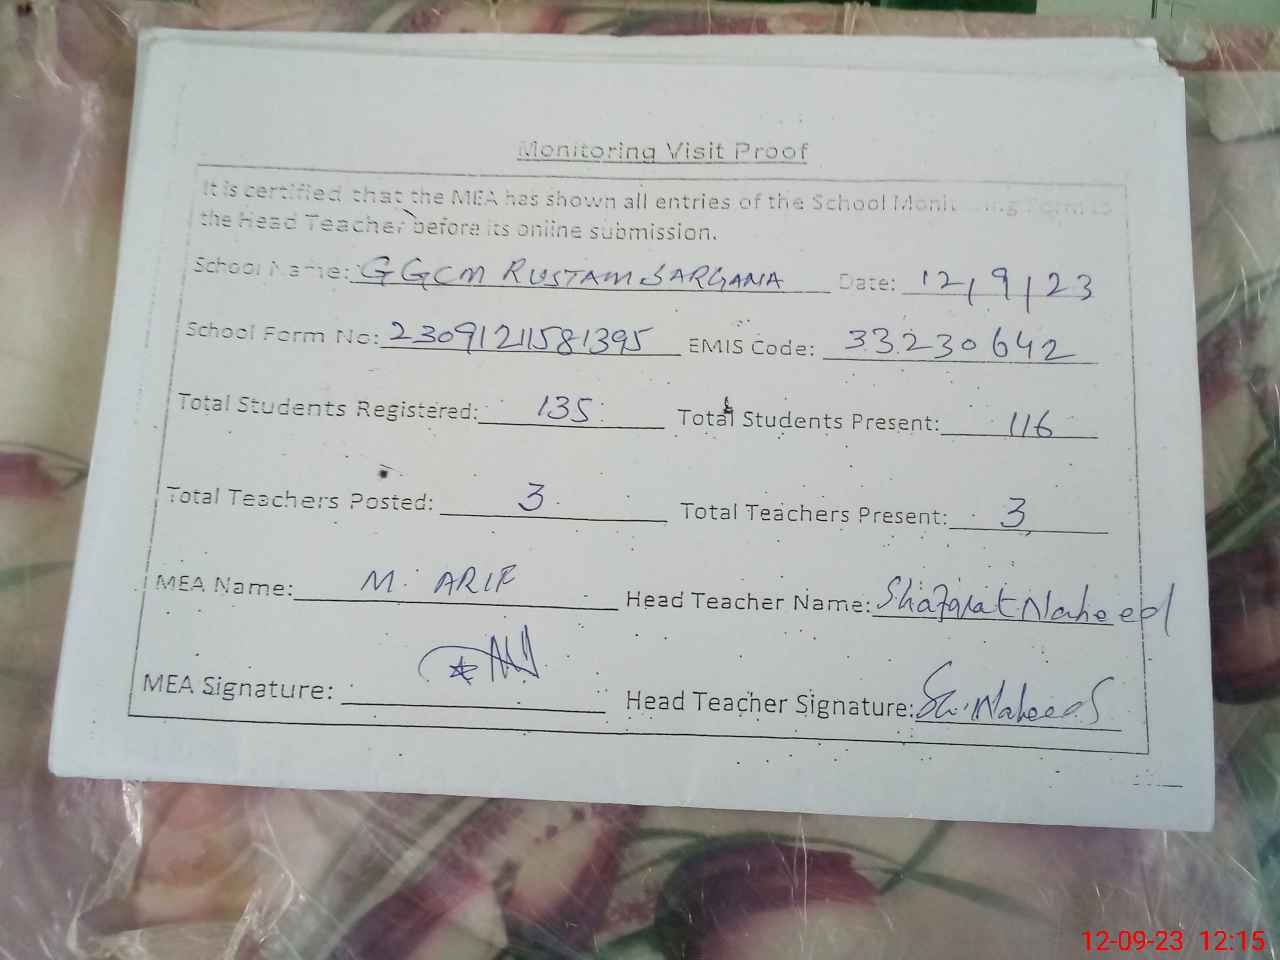 Monitoring Visit Proof
It is certified that the MEA has shown all entries of the School Monitoring Form to
the Head Teacher before its online submission.
School Name: GGCM RUSTAM SARGANA Date: 12/9/23
School Form No: 23091211581395 EMIS Code: 33230642
Total Students Registered: 135 Total Students Present: 116
Total Teachers Posted: 3 Total Teachers Present: 3
MEA Name: M. ARIF Head Teacher Name: Shafqat Naheed
MEA Signature: Head Teacher Signature: Sh. Naheed
12-09-23 12:15